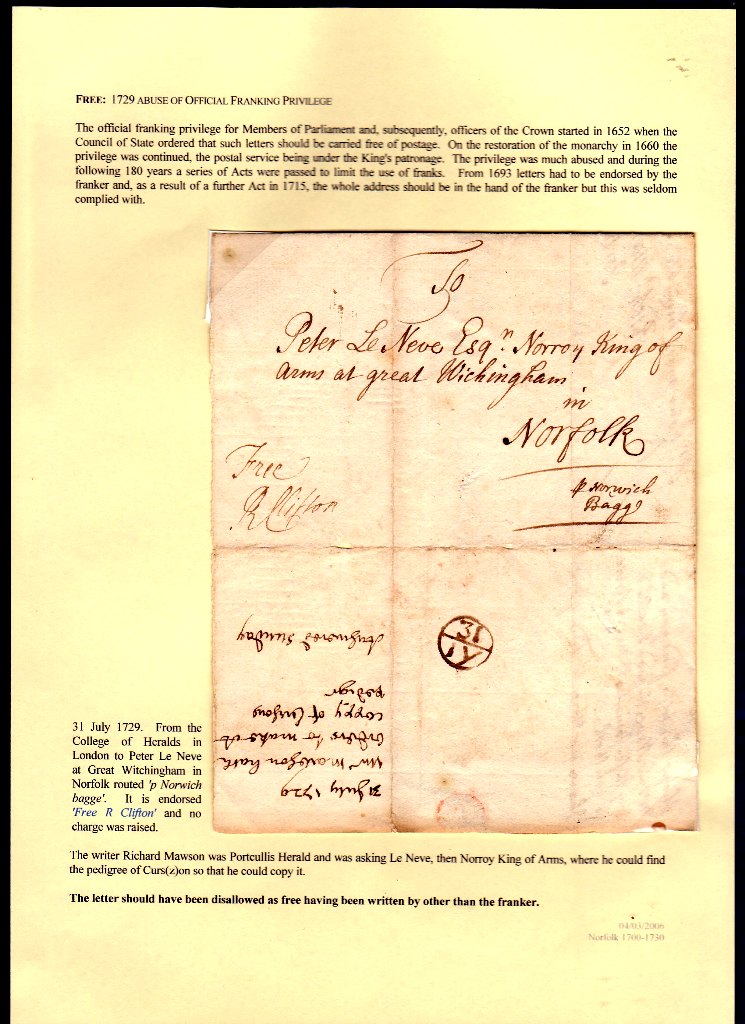 FREE: 1729 ABUSE OF OFFICIAL FRANKING PRIVILEGE
The official franking privilege for Members of Parliament and, subsequently, officers of the Crown started in 1652 when the
Council of State ordered that such letters should be carried free of postage. On the restoration of the monarchy in 1660 the
privilege was continued, the postal service being under the King's patronage. The privilege was much abused and during the
following 180 years a series of Acts were passed to limit the use of franks. From 1693 letters had to be endorsed by the
franker and, as a result of a further Act in 1715, the whole address should be in the hand of the franker but this was seldom
complied with.
To
Peter Le Neve Esqr. Norroy King of
Arms at great Wichingham
in
Norfolk
p Norwich
Bagge
Free
R Clifton
31
IY
31 July 1729
Mr Mawson hath
to make it
copy of Curzons
pedigr
Answered Sunday
31 July 1729. From the
College of Heralds in
London to Peter Le Neve
at Great Witchingham in
Norfolk routed 'p Norwich
bagge'. It is endorsed
'Free R Clifton' and no
charge was raised.
The writer Richard Mawson was Portcullis Herald and was asking Le Neve, then Norroy King of Arms, where he could find
the pedigree of Curs(z)on so that he could copy it.
The letter should have been disallowed as free having been written by other than the franker.
04/03/2006
Norfolk 1700-1730